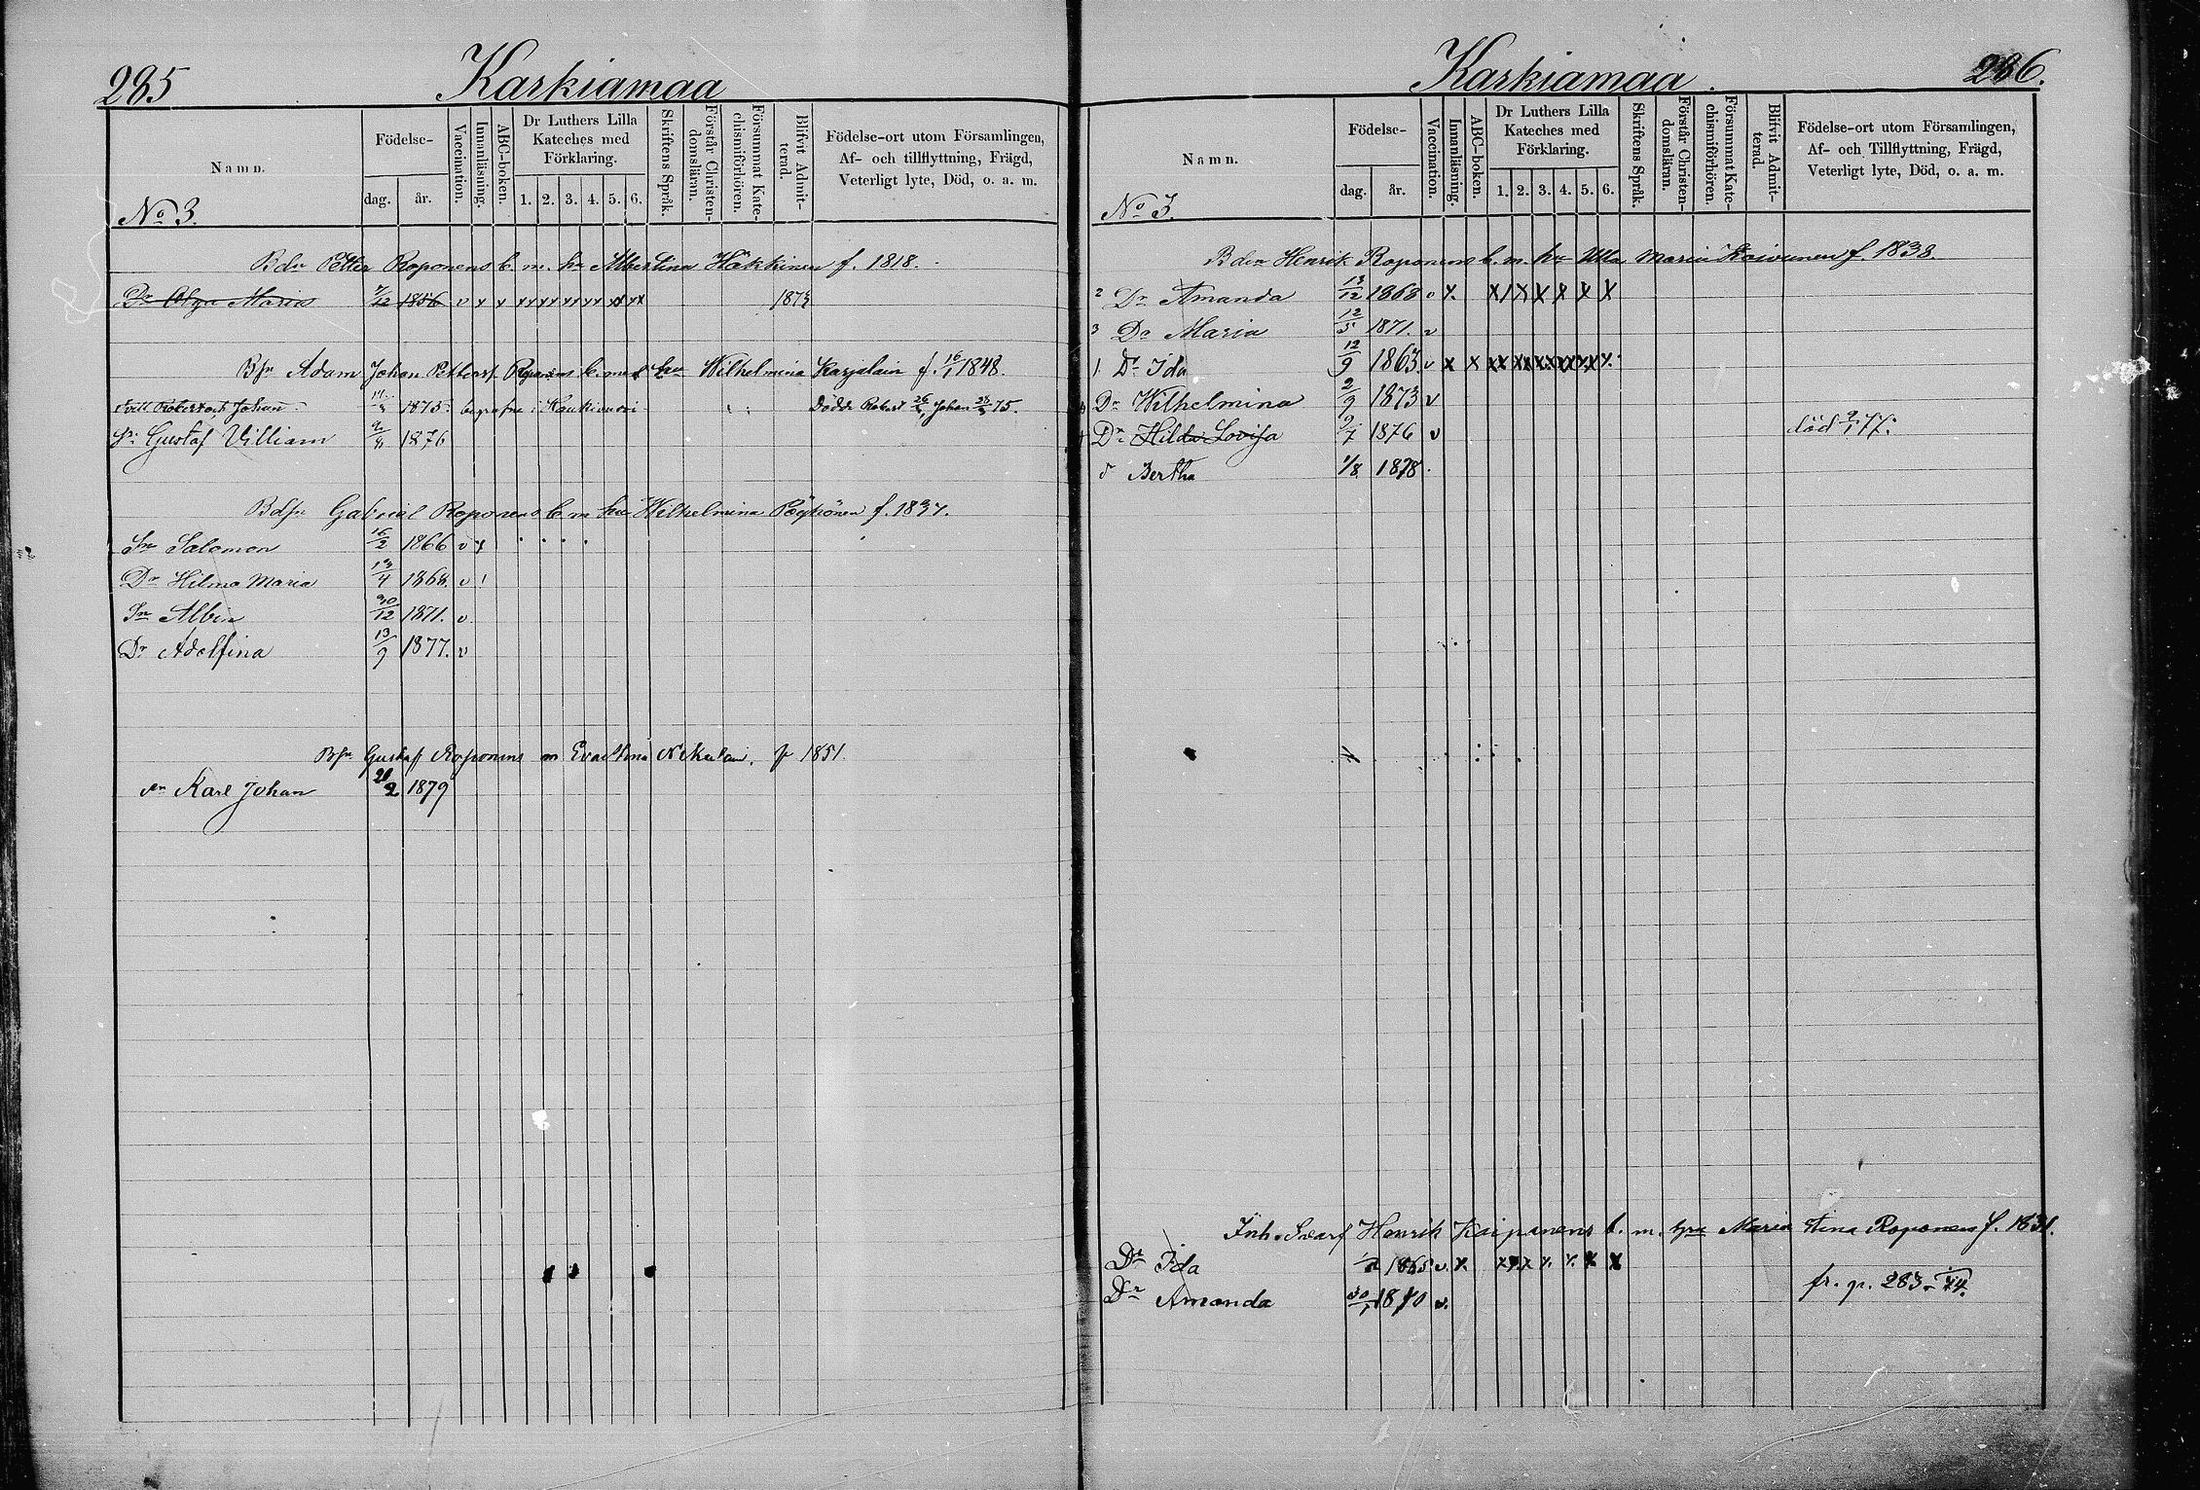 285 Karkiamaa
Namn. Födelse- dag. år. Vaccination. Innanläsning. ABC-boken. Dr Luthers Lilla Kateches med Förklaring. 1. 2. 3. 4. 5. 6. Skriftens Språk. Förstår Christendomsläran. Försummat Katechismiförhören. Blifvit Admitterad. Födelse-ort utom Församlingen, Af- och tillflyttning, Frägd, Veterligt lyte, Död, o. a. m.
No 3.
Bdn Petter Roponens b. m. hu Albertina Häkkinen f. 1818.
Dr Olga Maria 7/12 1856 v x x xx xx xx xx xx xx 1873
Bsn Adam Johan Pettersf. Roponens b. med hu Wilhelmina Karjalain f. 16/1 1848.
Robert och Johan 1875 i dödde Robert Johan 75.
Sn Gustaf Villiam 1876
Gabriel Roponens b m hu Wilhelmina f. 1837.
Sn Salomon 16/2 1866 v x
Dr Hilma Maria 13/4 1868. v
Sn Albin 30/12 1871. v
Dr Adolfina 13/9 1877. v
Bsn Gustaf Roponens m Eva Stina f 1851.
sn Karl Johan 21/2 1879
Karkiamaa. 286.
Namn. Födelse- dag. år. Vaccination. Innanläsning. ABC-boken. Dr Luthers Lilla Kateches med Förklaring. 1. 2. 3. 4. 5. 6. Skriftens Språk. Förstår Christendomsläran. Försummat Katechismiförhören. Blifvit Admitterad. Födelse-ort utom Församlingen, Af- och Tillflyttning, Frägd, Veterligt lyte, Död, o. a. m.
No 3.
Bdn Henrik Roponens b. m. hu Ulla Maria Koivunen f. 1838.
2 Dr Amanda 13/12 1868 v x. x x x x x x
3 Dr Maria 12/5 1871. v
1 Dr Ida 12/9 1863. v x x xx xx xx xx xx x.
Dr Wilhelmina 2/9 1873 v
Dr Hilda Lovisa 9/7 1876 v död 77.
d Bertha 1/8 1878.
Inh. Svarf Henrik Kaipanens b. m. hu Maria Stina Roponens f. 1831.
Dr Ida 1865 v. x. x x x x. x. x x
Dr Amanda 30/1 1870 v. fr. p. 283 74.